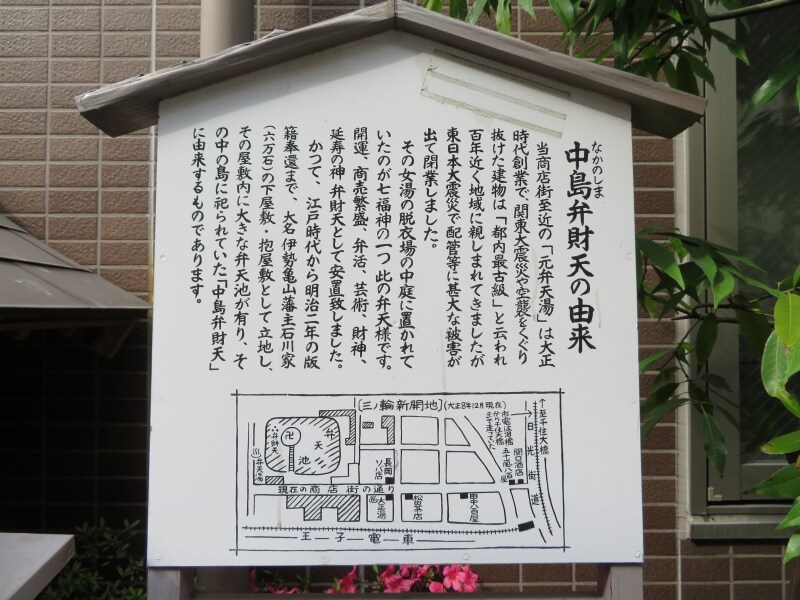 なかのしま
中島弁財天の由来
当商店街至近の「元弁天湯」は大正
時代創業で、関東大震災や空襲をくぐり
抜けた建物は「都内最古級」と云われ
百年近く地域に親しまれてきましたが
東日本大震災で配管等に甚大な被害が
出て閉業しました。
その女湯の脱衣場の中庭に置かれて
いたのが七福神の一つ此の弁天様です。
開運、商売繁盛、弁活、芸術、財神、
延寿の神 弁財天として安置致しました。
かつて、江戸時代から明治二年の版
籍奉還まで、大名 伊勢亀山藩主石川家
(六万石)の下屋敷・抱屋敷として立地し、
その屋敷内に大きな弁天池が有り、そ
の中の島に祀られていた「中島弁財天」
に由来するものであります。
[三ノ輪新開地](大正8年12月現在)
至千住大橋
日光街道
市電は此橋
から千住大橋
まで走っていた
関口酒店
五十嵐八百屋
弁天池
卍
弁財天
弁天湯
長岡
ソバ店
現在の商店街の通り
大正湯
松田茶店
田中八百屋
王子電車